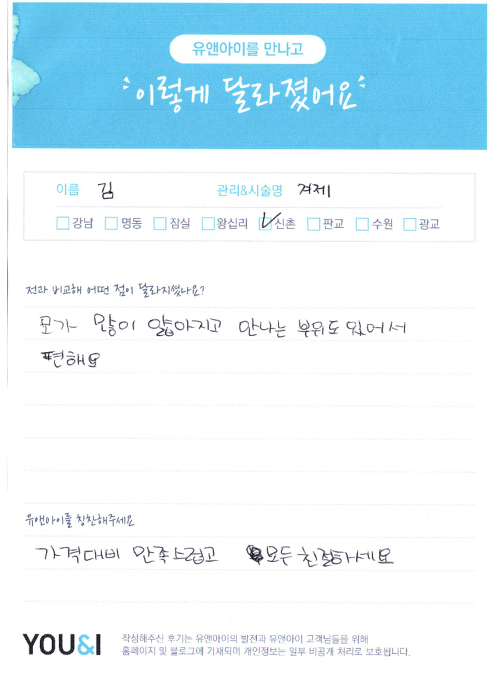 유앤아이를 만나고
이렇게 달라졌어요
이름 김 관리&시술명 겨제
강남 명동 잠실 왕십리 신촌 판교 수원 광교
전과 비교해 어떤 점이 달라지셨나요?
모가 많이 얇아지고 안나는 부위도 있어서
편해요
유앤아이를 칭찬해주세요
가격대비 만족스럽고 모두 친절하세요
YOU&I
작성해주신 후기는 유앤아이의 발전과 유앤아이 고객님들을 위해
홈페이지 및 블로그에 기재되며 개인정보는 일부 비공개 처리로 보호됩니다.